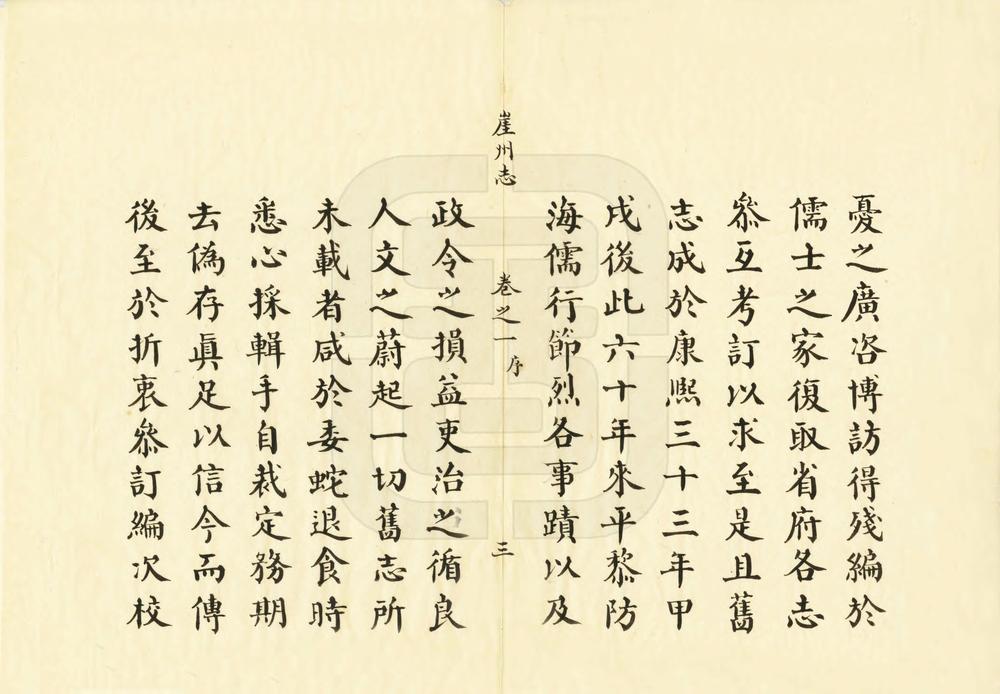 憂之廣咨博訪得殘編於
儒士之家復取省府各志
叅互考訂以求至是且舊
志成於康熙三十三年甲
戌後此六十年來平黎防
海儒行節烈各事蹟以及
崖州志
卷之一
序
三
政令之損益吏治之循良
人文之蔚起一切舊志所
未載者咸於委蛇退食時
悉心採輯手自裁定務期
去偽存眞足以信今而傳
後至於折衷叅訂編次校